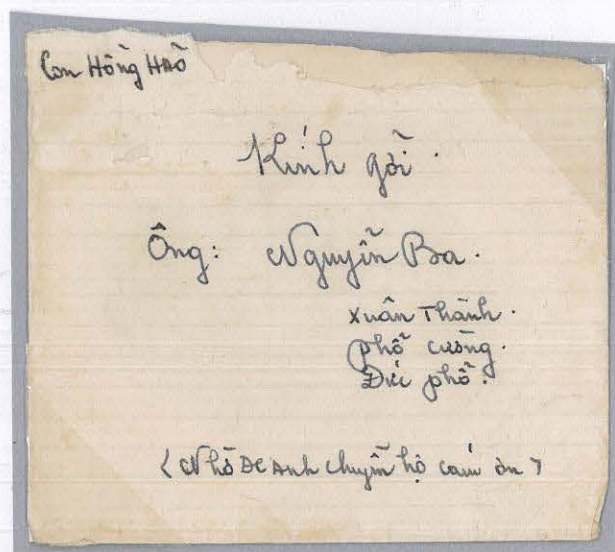 Con Hồng Hảo
Kính gởi.
Ông: Nguyễn Ba.
Xuân Thành.
phổ cường.
Đức phổ.
< Nhờ ĐC Anh chuyển hộ cám ơn >